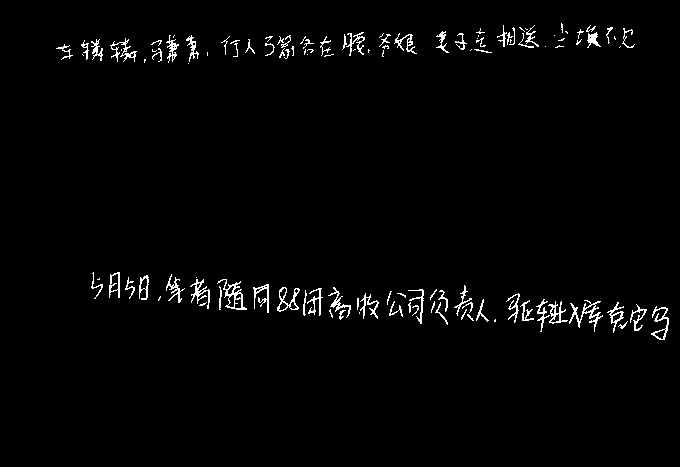 车辚辚,马萧萧,行人弓箭各在腰.爷娘妻子走相送.尘埃不见
5月5日,笔者随同88团畜牧公司负责人.驱车从库克巴乌